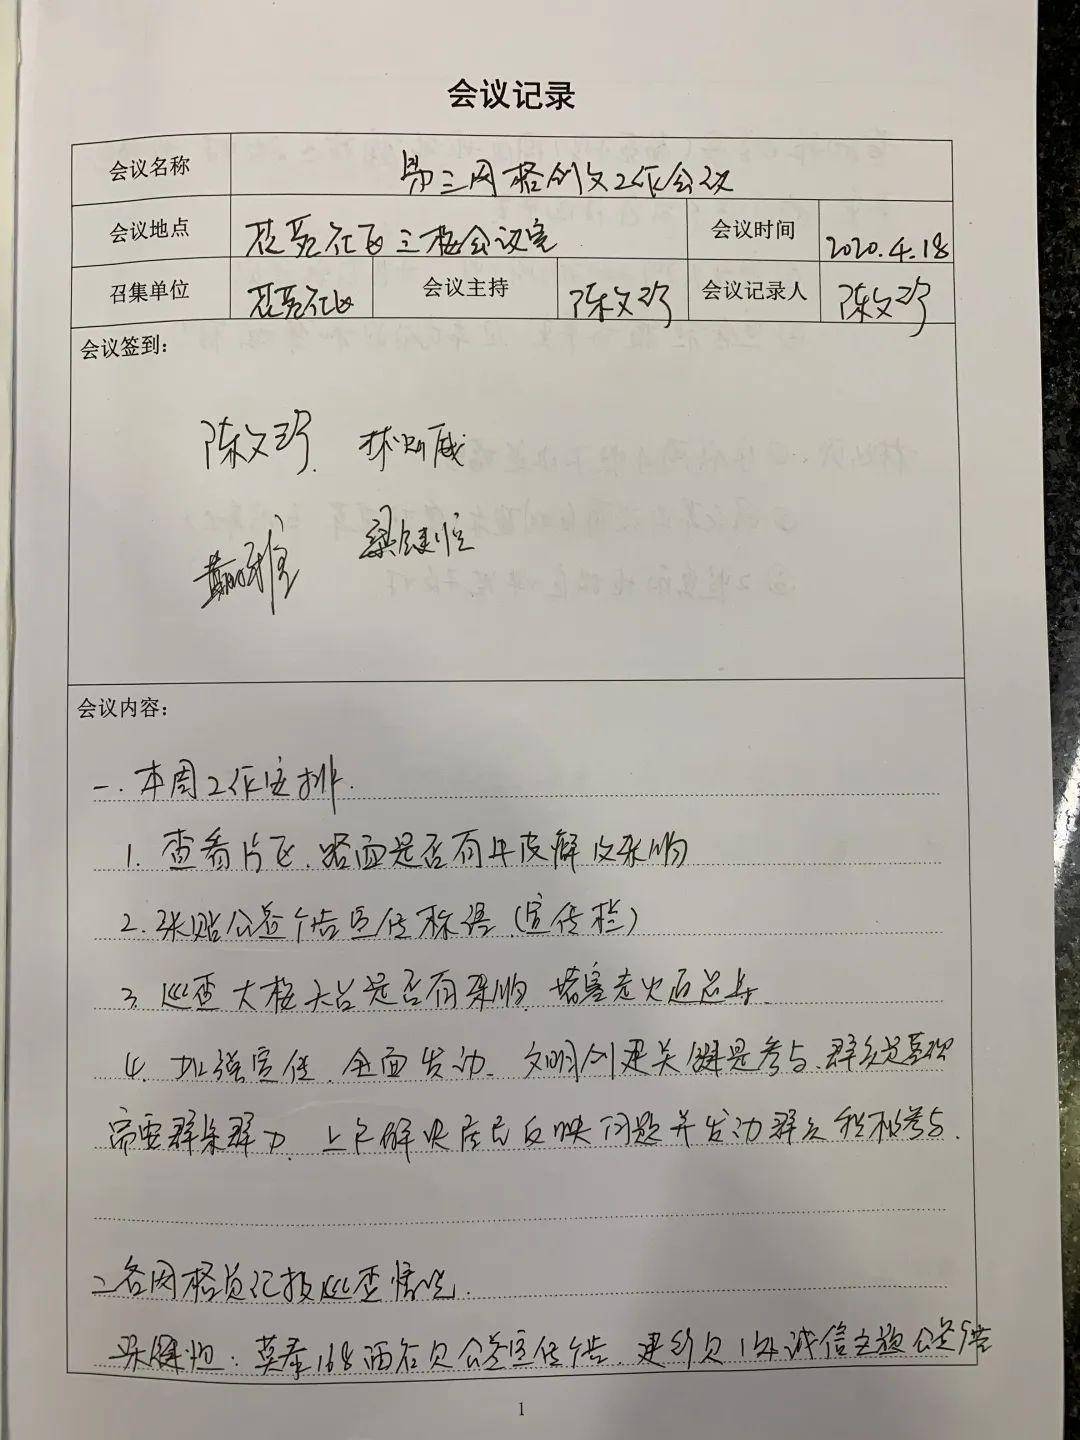 会议记录
会议名称 第三网格创文工作会议
会议地点 社区三楼会议室 会议时间 2020.4.18
召集单位 社区 会议主持 陈文玲 会议记录人 陈文玲
会议签到：
陈文玲 林
梁健恒
会议内容：
一.本周工作安排.
1. 查看片区.路面是否有牛皮癣及杂物
2. 张贴公益广告宣传标语(宣传栏)
3. 巡查大楼天台是否有杂物.堵塞走火通道等.
4. 加强宣传.全面发动.文明创建关键是参与.群众是基础
需要群策群力.上门解决居民反映问题并发动群众积极参与.
二各网格员汇报巡查情况.
梁健恒：168两名贝公益宣传广告.建议贝1块诚信主题公益广告
1